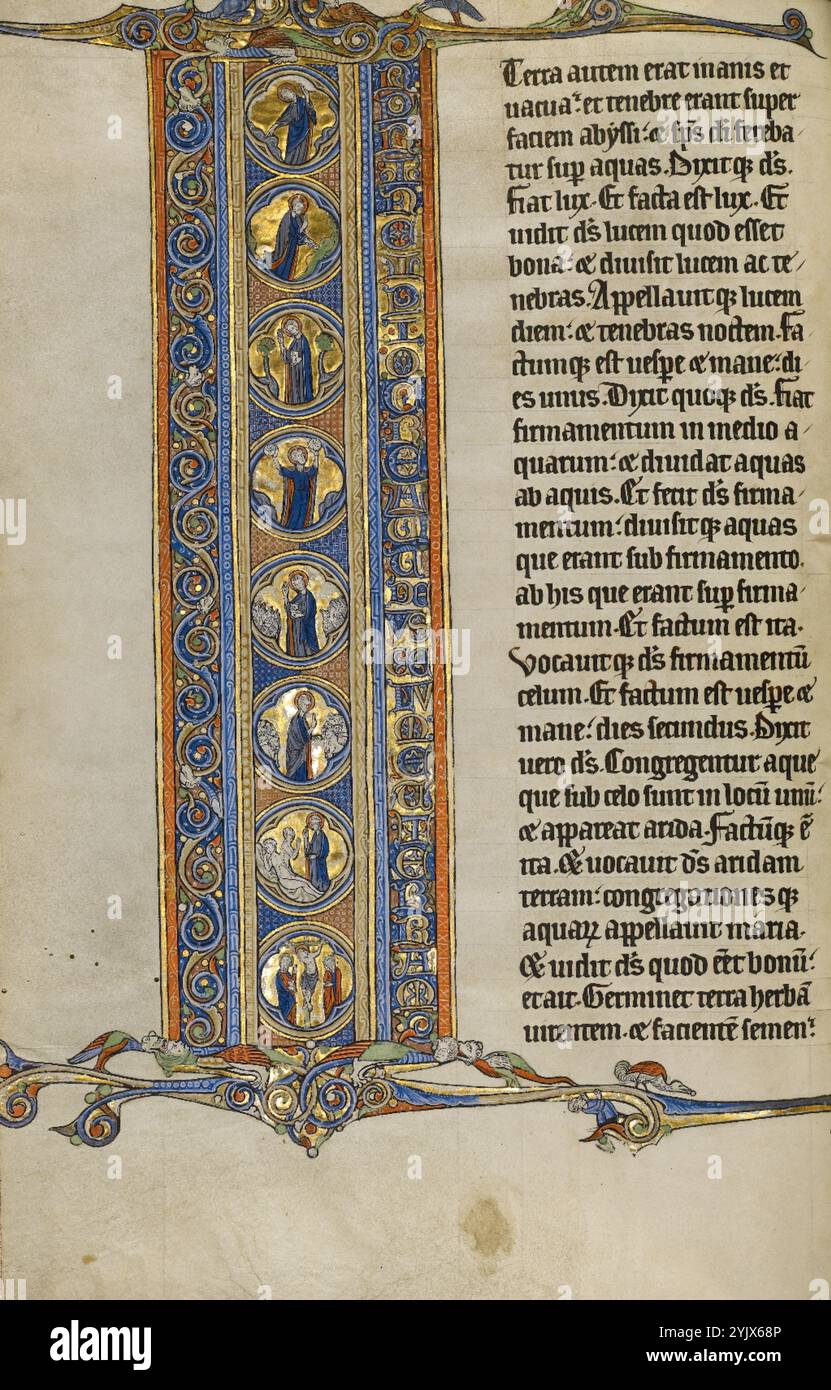 Terra autem erat inanis et
uacua: et tenebre erant super
faciem abyssi: et sp̄s dī fereba
tur sup aquas. Dixitqȝ d̄s.
Fiat lux. Et facta est lux. Et
uidit d̄s lucem quod esset
bona: et diuisit lucem ac te/
nebras. Appellauitqȝ lucem
diem: et tenebras noctem. Fa
ctumqȝ est uesp̄e et mane: di
es unus. Dixit quoqȝ d̄s. Fiat
firmamentum in medio a/
quarum: et diuidat aquas
ab aquis. Et fecit d̄s firma/
mentum: diuisitqȝ aquas
que erant sub firmamento.
ab his que erant sup firma/
mentum. Et factum est ita.
Vocauitqȝ d̄s firmamentū
celum. Et factum est uesp̄e et
mane: dies secundus. Dixit
uero d̄s. Congregentur aque
que sub celo sunt in locū unū:
et appareat arida. Factūqȝ ē
ita. Et uocauit d̄s aridam
terram: congregationesqȝ
aquaꝝ appellauit maria.
Et uidit d̄s quod eēt bonū:
et ait. Germinet terra herbā
uirentem. et facientē semen:
alamy
Image ID: 2YJX68P
www.alamy.com